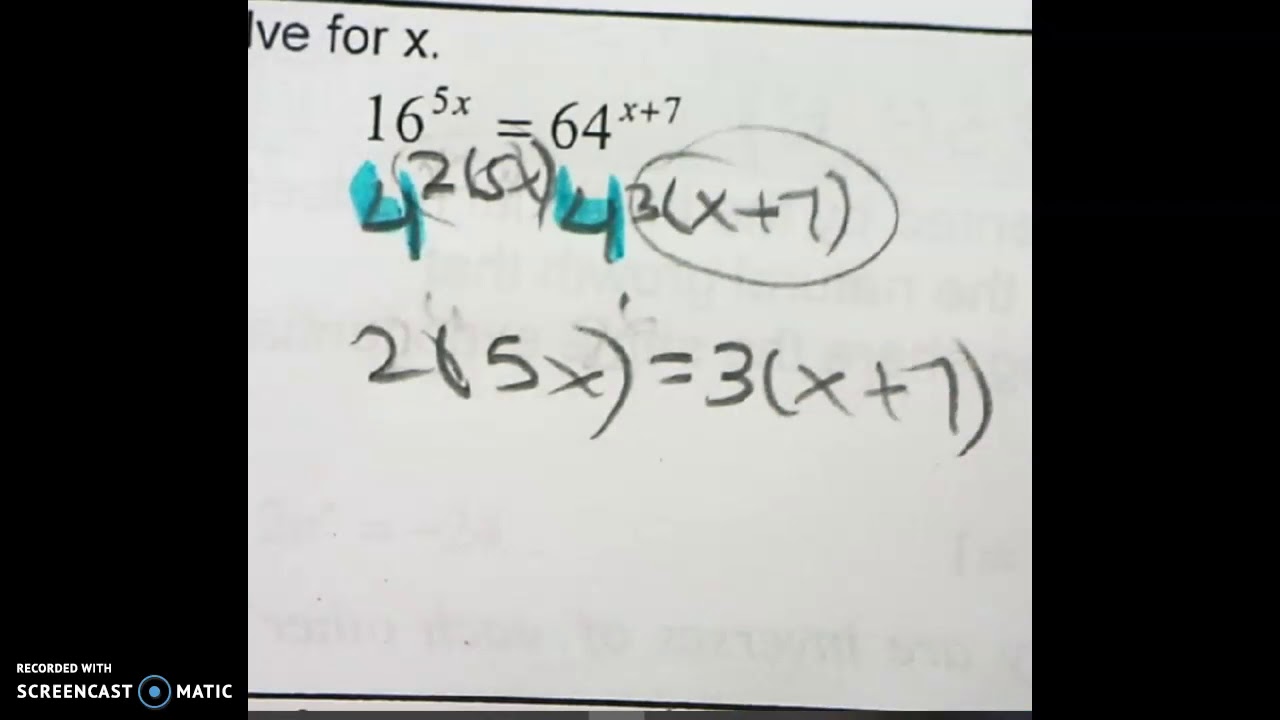 lve for x.
16^{5x} = 64^{x+7}
4^{2(5x)} 4^{3(x+7)}
2(5x) = 3(x+7)
RECORDED WITH
SCREENCAST MATIC